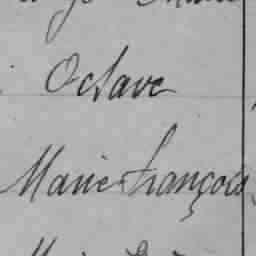 Octave
Marie François